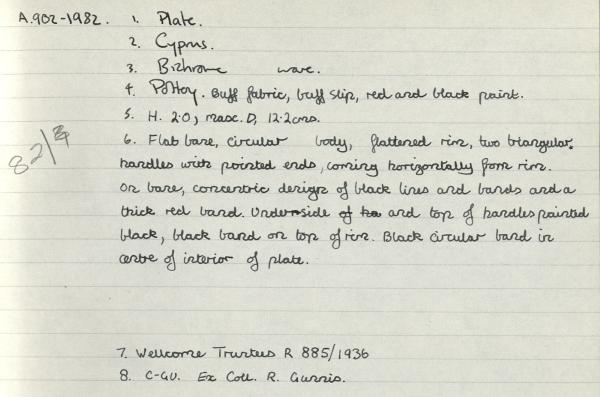 A.902-1982. 1. Plate.
2. Cyprus.
3. Bichrome ware.
4. Pottery. Buff fabric, buff slip, red and black paint.
5. H. 2.0; max. D, 12.2cms.
82/3
6. Flat base, circular body, flattened rim, two triangular
handles with pointed ends, coming horizontally from rim.
On base, concentric design of black lines and bands and a
thick red band. Underside of and top of handles painted
black, black band on top of rim. Black circular band in
centre of interior of plate.
7. Wellcome Trustees R 885/1936
8. Ex Coll. R.